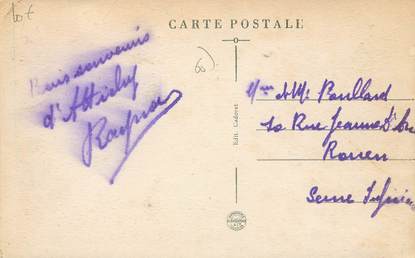 10 f
CARTE POSTALE
60
souvenirs
d'Attichy
Edit. Cadoret
Mme & Mr Poullard
10 Rue Jeanne D'Arc
Rouen
Seine Inférieure